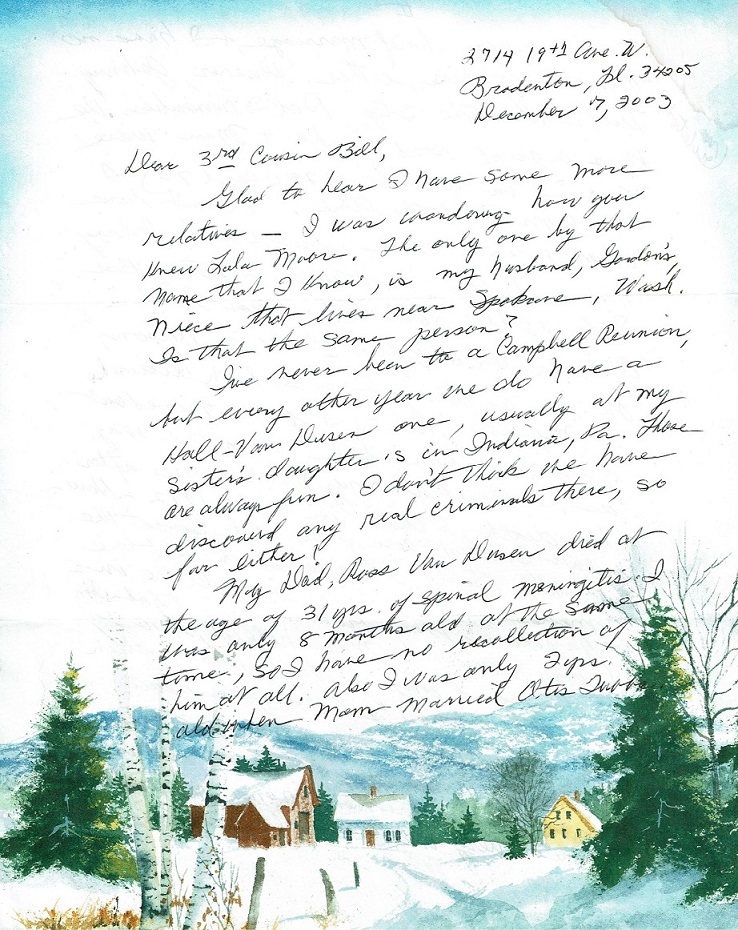 2714 19th Ave. W.
Bradenton, Fl. 34205
December 7, 2003
Dear 3rd Cousin Bill,
Glad to hear I have some more
relatives — I was wondering how you
knew Lula Moore. The only one by that
name that I know, is my husband, Gordon's,
niece that lives near Spokane, Wash.
Is that the same person?
I've never been to a Campbell Reunion,
but every other year we do have a
Hall-Van Dusen one, usually at my
sister's daughter's in Indiana, Pa. Those
are always fun. I don't think we have
discovered any real criminals there, so
far either!
My Dad, Ross Van Dusen died at
the age of 31 yrs. of spinal meningitis. I
was only 8 months old at the same
time, so I have no recollection of
him at all. Also I was only 2 yrs.
old when Mom married Otis